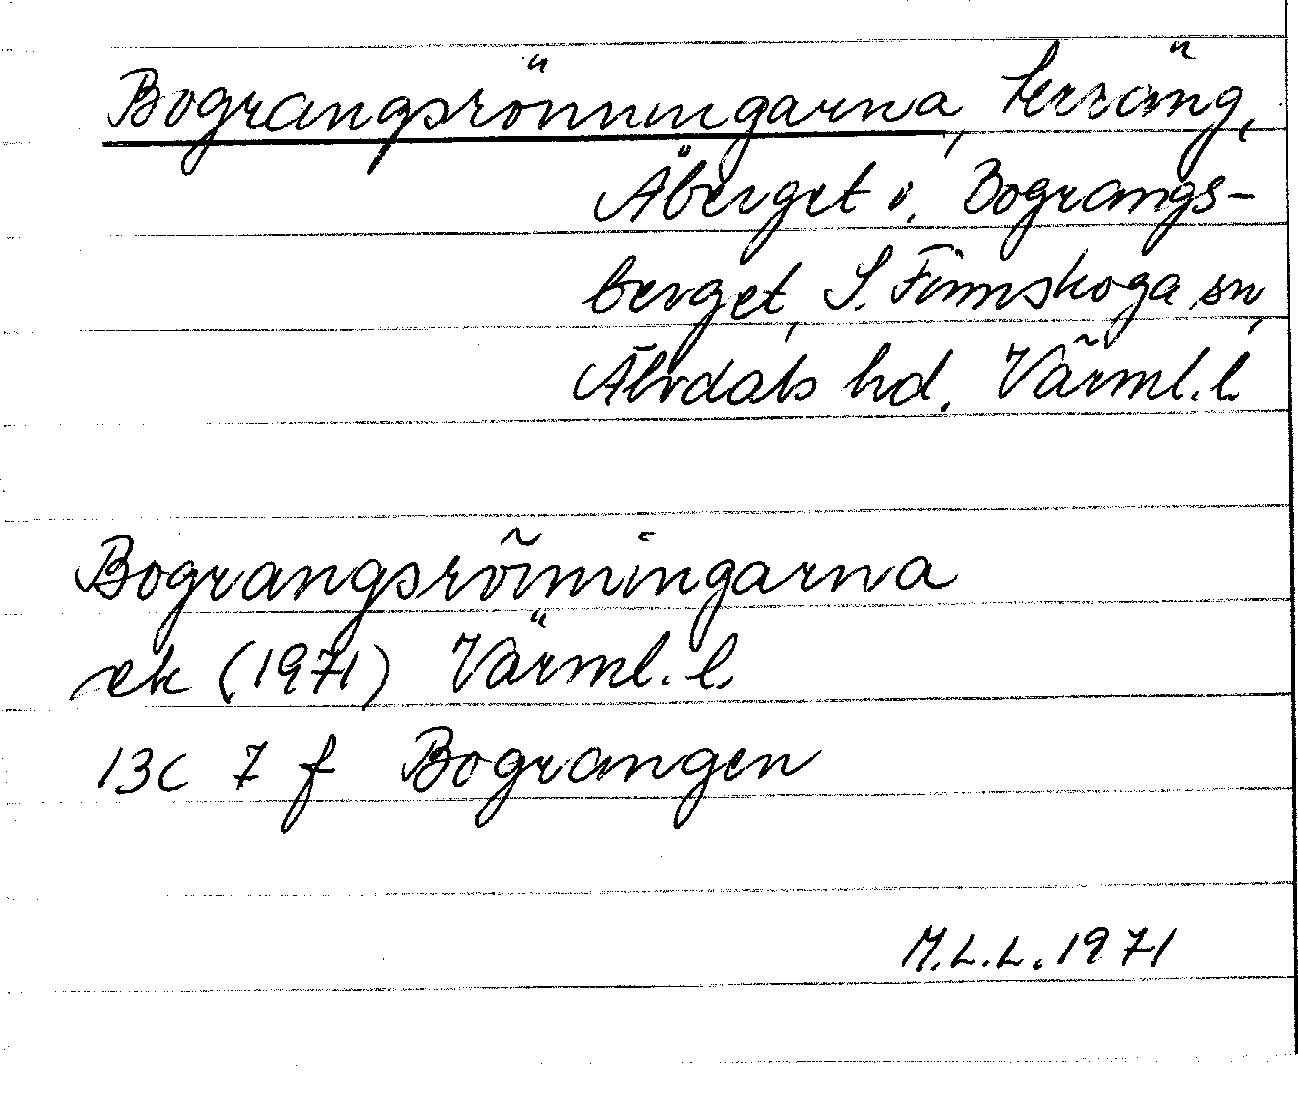 Bograngsrönningarna, terräng,
Åberget o. Bograngs-
berget, S. Finnskoga sn,
Älvdals hd. Värml. l.
Bograngsrönningarna
ek (1971) Värml. l.
13C 7 f Bograngen
M.L.L. 1971